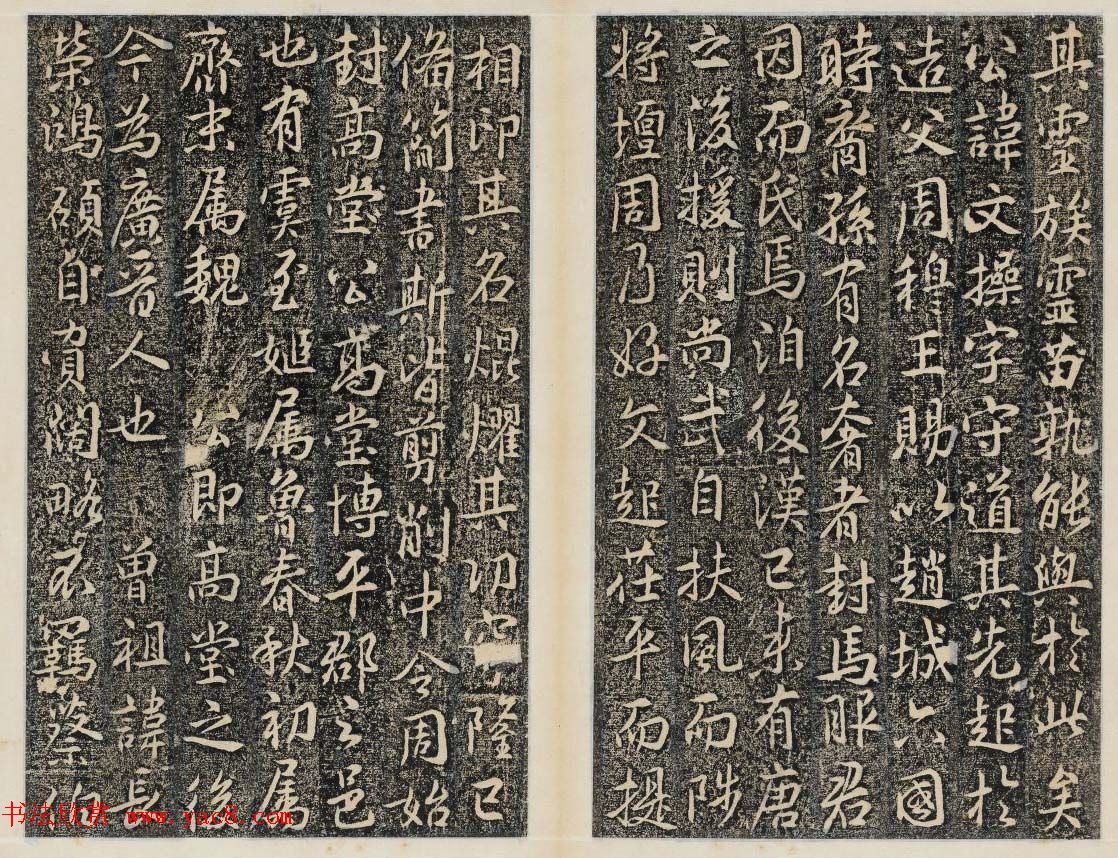 其靈族靈苗孰能與於此矣
公諱文操字守道其先起於
造父周穆王賜以趙城六國
時裔孫有名奢者封馬服君
因而氏焉洎後漢已来有唐
之後援則尚武自扶風而陟
將壇周乃好文起茌平而提
相印其名焜燿其功穹隆已
俻簡書斯皆剪削中令周始
封高堂公高堂博平郡之邑
也有虞至姬属魯春秋初属
齊末属魏 公即高堂之後
今為廣晉人也 曾祖諱長
榮鴻碩自負闊略不羈蔡
书法欣赏 www.yac8.com